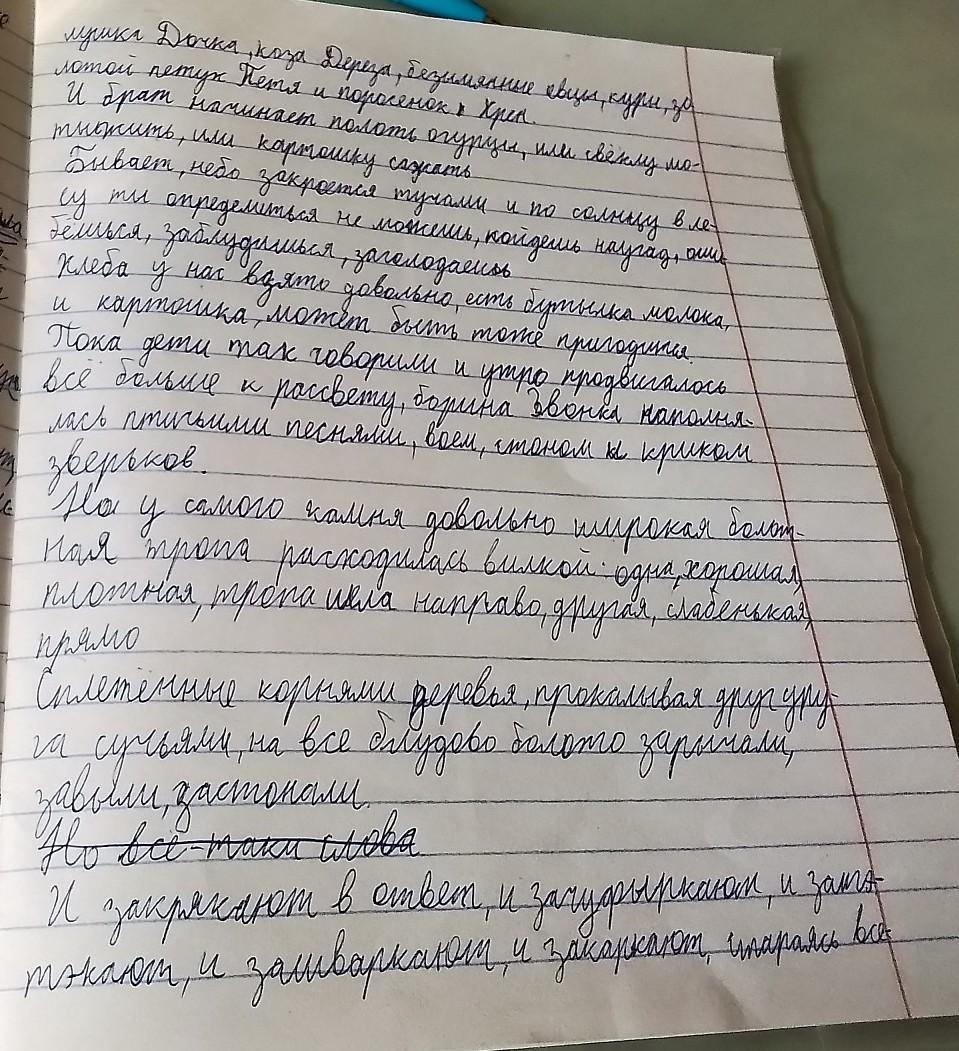 лушка Дочка, коза Дереза, безимянные овцы, куры, зо
лотой петух Петя и поросенок Хрен.
И брат начинает полоть огурцы, или свёклу мо-
тыжить, или картошку сажать
Бывает, небо закроется тучами и по солнцу в ле-
су ты определиться не можешь, пойдешь наугад, оши
бёшься, заблудишься, заголодаешь
Хлеба у нас взято довольно, есть бутылка молока,
и картошка, может быть тоже пригодится.
Пока дети так говорили и утро продвигалось
всё больше к рассвету, борина Звонка наполня-
лась птичьими песнями, воем, стоном и криком
зверьков.
Но у самого камня довольно широкая болот-
ная тропа расходилась вилкой: одна, хорошая,
плотная, тропа шла направо, другая, слабенькая,
прямо
Сплетённые корнями деревья, прокалывая друг дру-
га сучьями, на все блудово болото зарычали,
завыли, застонали.
Но всё-таки слова
И закрякают в ответ, и зачуфыркают, и затэ-
тэкают, и зашваркают, и закаркают, стараясь все